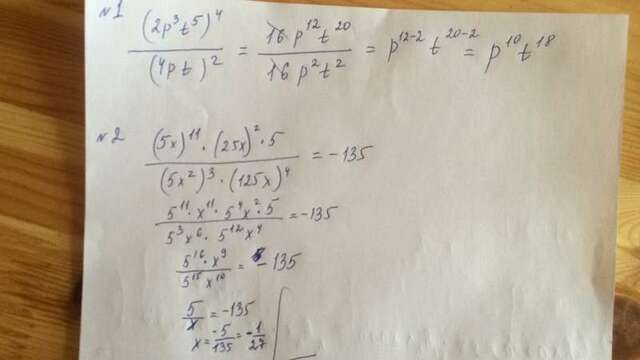 №1
(2p³t⁵)⁴ / (4pt)² = 16 p¹² t²⁰ / 16 p² t² = p¹²⁻² t²⁰⁻² = p¹⁰ t¹⁸
№2
(5x)¹¹ · (25x)² · 5 / (5x²)³ · (125x)⁴ = -135
5¹¹ · x¹¹ · 5⁴ x² · 5 / 5³ x⁶ · 5¹² x⁴ = -135
5¹⁶ · x⁹ / 5¹⁵ x¹⁰ = -135
5 / x = -135
x = -5 / 135 = -1 / 27